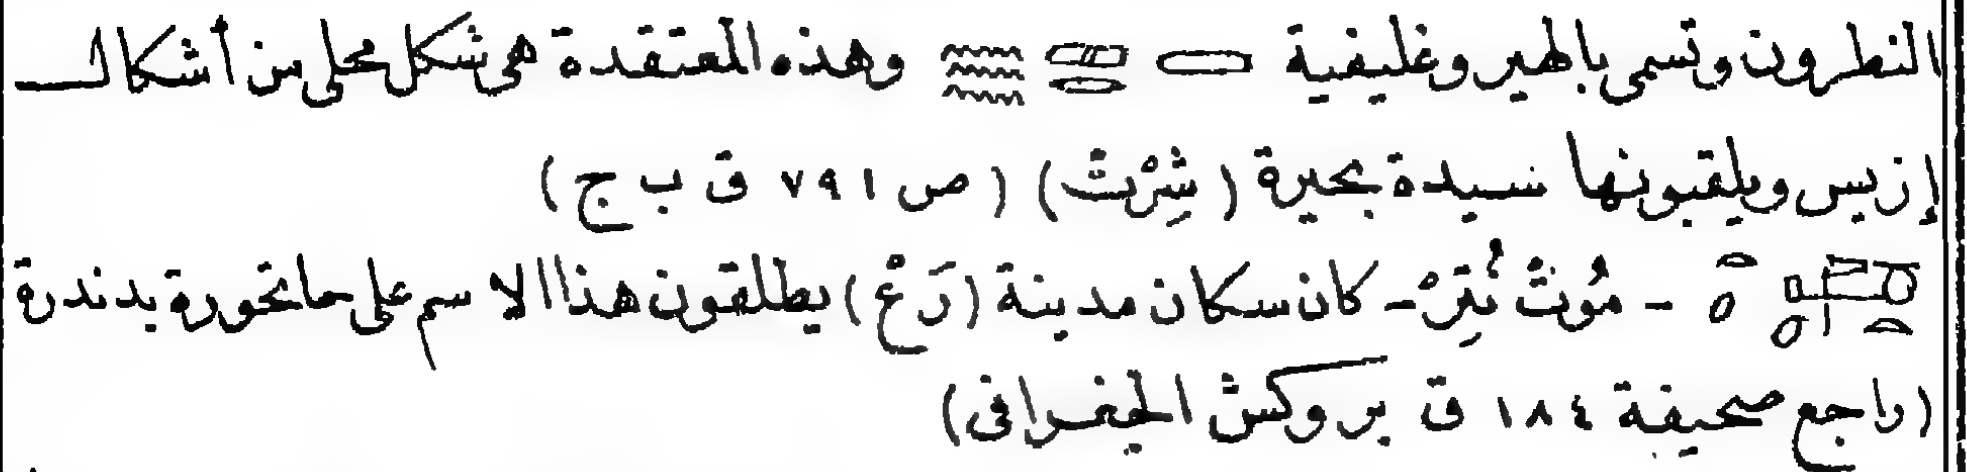 النطرون وتسمى بالهيروغليفية وهذه المعتقدة هى شكل محلى من أشكال
إزيس ويلقبونها سيدة بحيرة ( شِرْبتْ ) ( ص ٧٩١ ق ب ج )
- مُوتْ نُتِرْ - كان سكان مدينة ( رَعْ ) يطلقون هذا الاسم على حاتحورة بدندرة
( راجع صحيفة ١٨٤ ق بروكش الجغرافى )